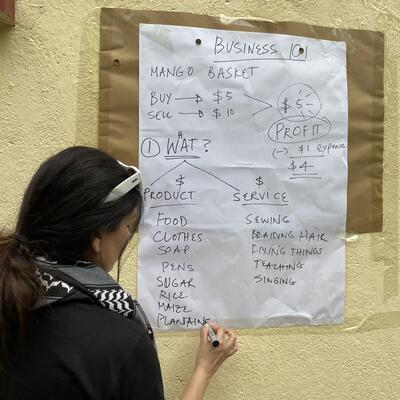 BUSINESS 101
MANGO BASKET
BUY → $ 5
SELL → $ 10
$5-
PROFIT
(-) $1 expense
$4
① WHAT?
$ PRODUCT
FOOD
CLOTHES
SOAP
PENS
SUGAR
RICE
MAIZE
PLANTAINS
$ SERVICE
SEWING
BRAIDING HAIR
FIXING THINGS
TEACHING
SINGING